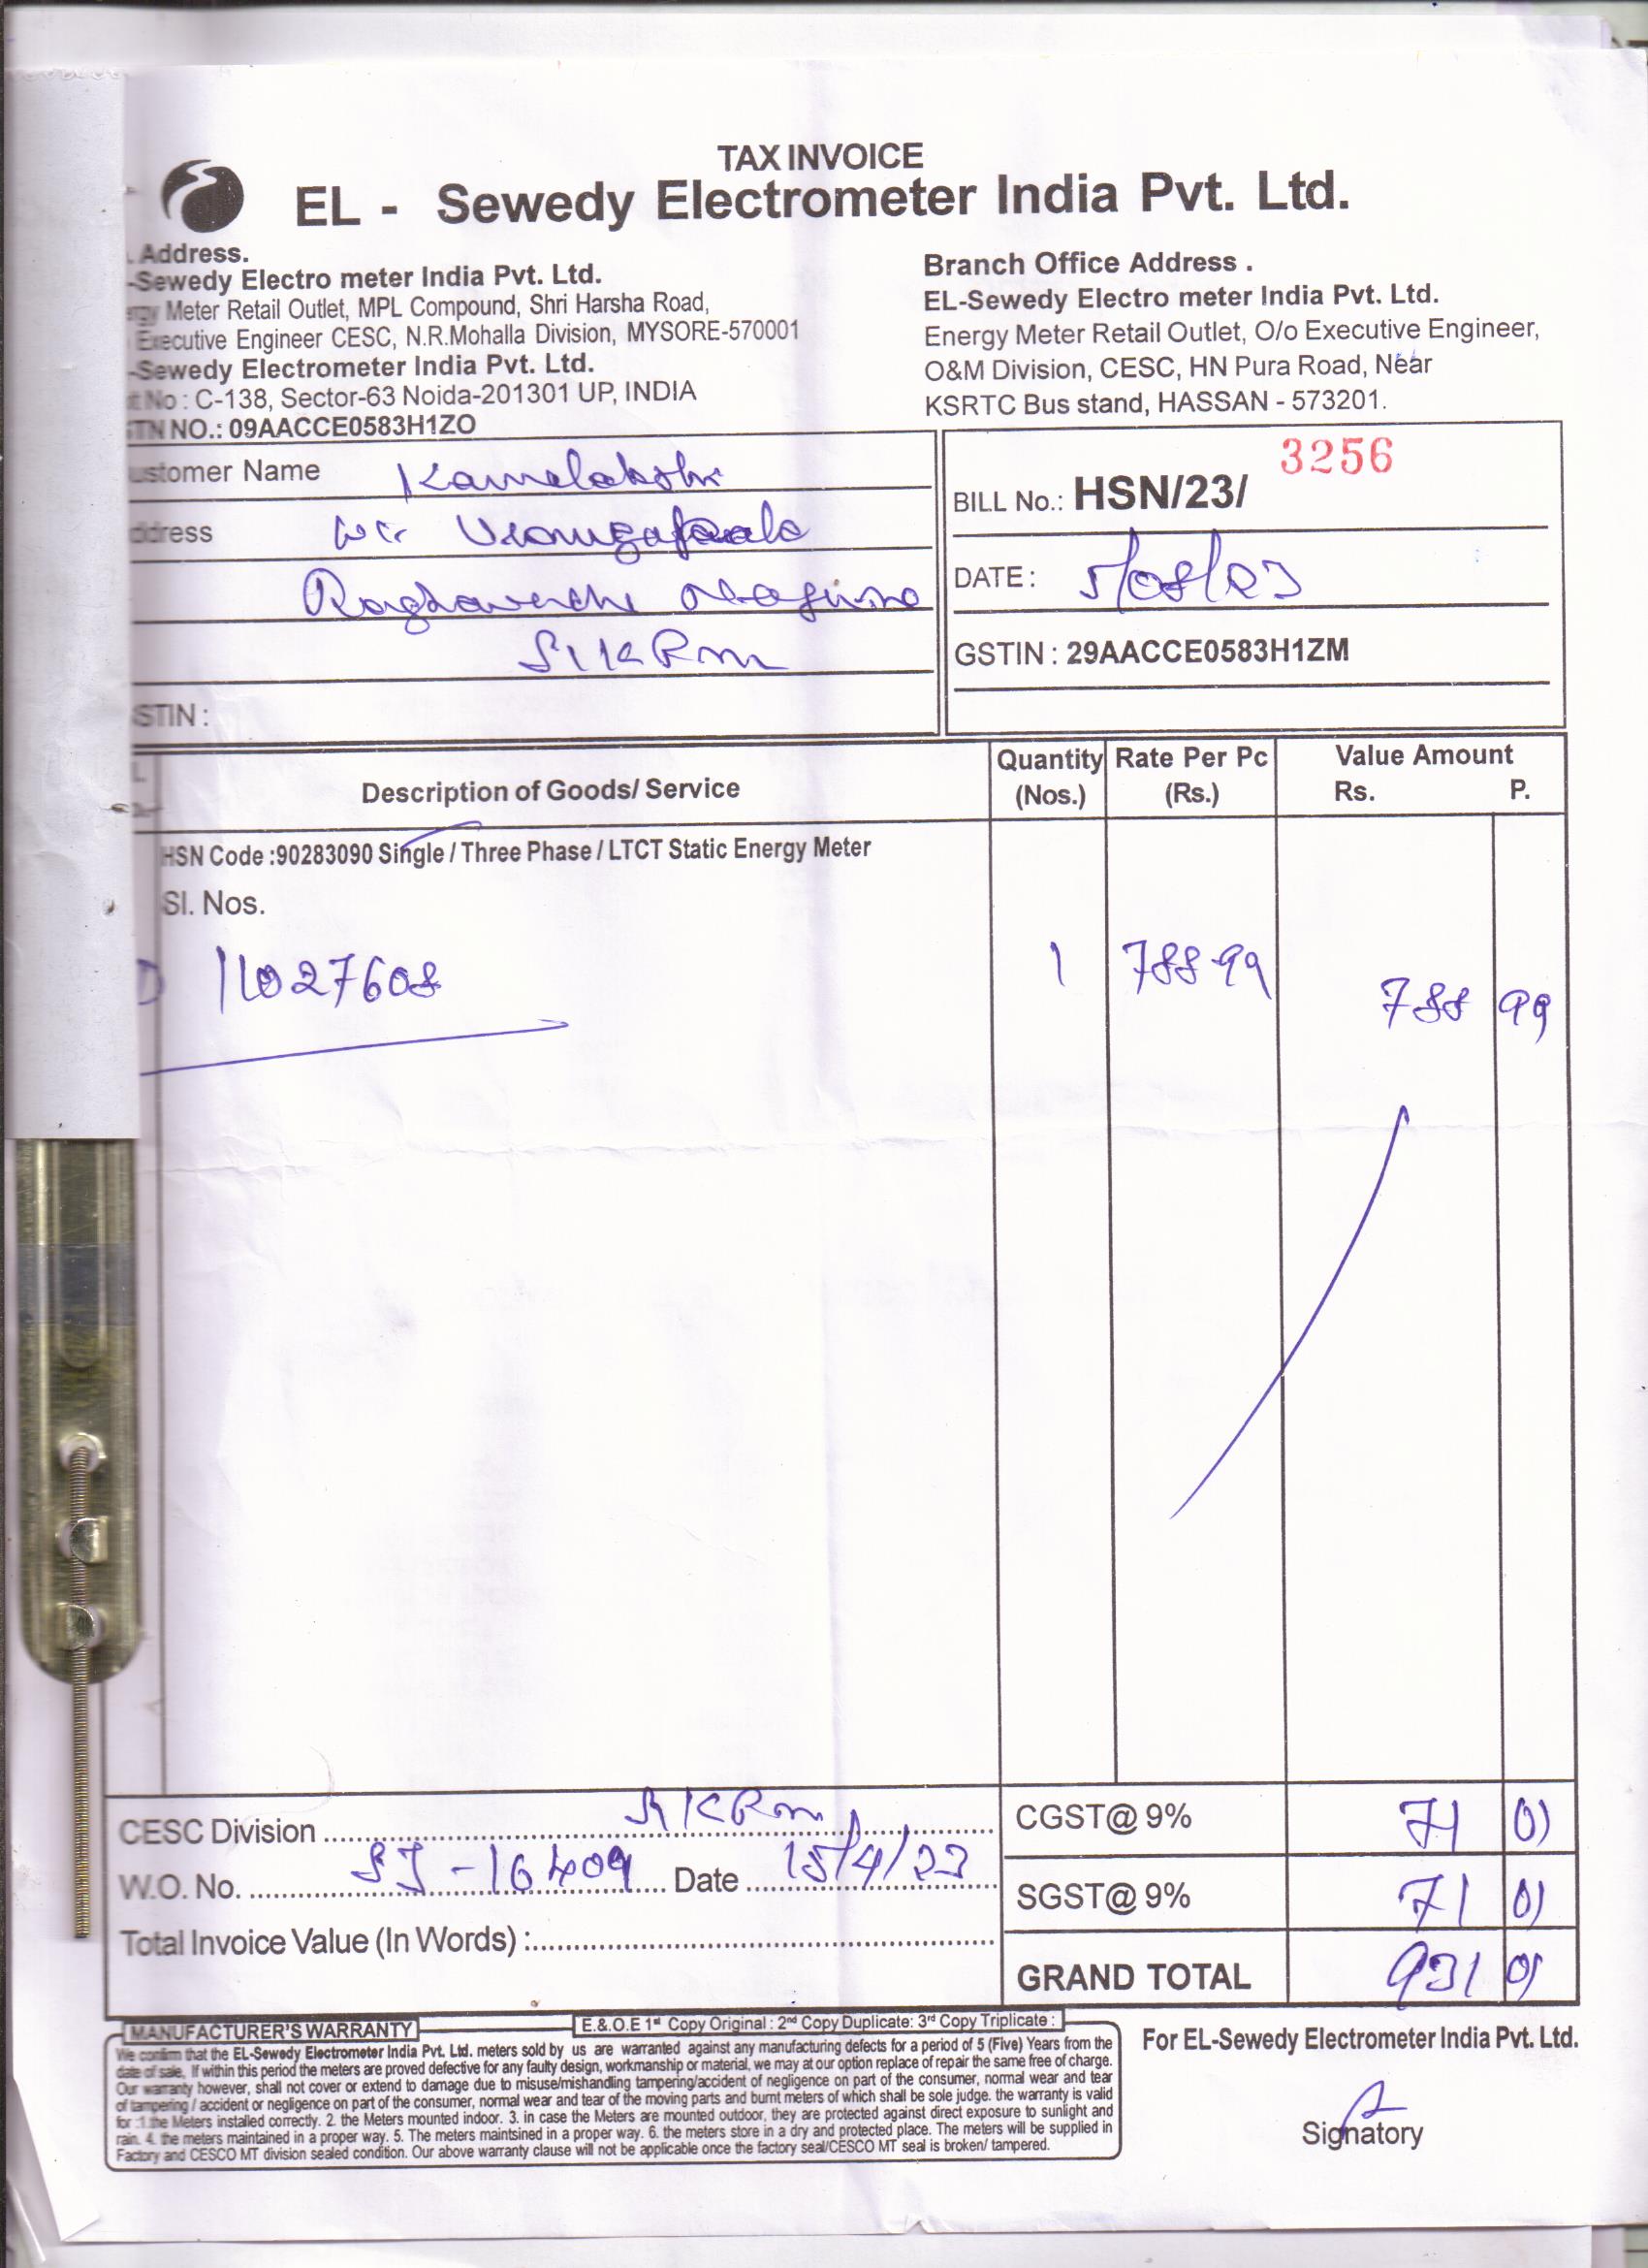 TAX INVOICE
EL - Sewedy Electrometer India Pvt. Ltd.
Address.
-Sewedy Electro meter India Pvt. Ltd.
Meter Retail Outlet, MPL Compound, Shri Harsha Road,
Executive Engineer CESC, N.R.Mohalla Division, MYSORE-570001
-Sewedy Electrometer India Pvt. Ltd.
No : C-138, Sector-63 Noida-201301 UP, INDIA
TN NO.: 09AACCE0583H1ZO
Branch Office Address .
EL-Sewedy Electro meter India Pvt. Ltd.
Energy Meter Retail Outlet, O/o Executive Engineer,
O&M Division, CESC, HN Pura Road, Near
KSRTC Bus stand, HASSAN - 573201.
ustomer Name Kamalakshi
ddress
STIN :
BILL No.: HSN/23/ 3256
DATE : 5/08/23
GSTIN : 29AACCE0583H1ZM
Description of Goods/ Service Quantity (Nos.) Rate Per Pc (Rs.) Value Amount Rs. P.
HSN Code :90283090 Single / Three Phase / LTCT Static Energy Meter
Sl. Nos.
11027608 1 788-99 788 99
CESC Division SKRm CGST@ 9% 71 01
W.O. No. SJ-16409 Date 15/4/23 SGST@ 9% 71 01
Total Invoice Value (In Words) : GRAND TOTAL 931 01
E.&.O.E 1st Copy Original : 2nd Copy Duplicate: 3rd Copy Triplicate :
MANUFACTURER'S WARRANTY
We confirm that the EL-Sewedy Electrometer India Pvt. Ltd. meters sold by us are warranted against any manufacturing defects for a period of 5 (Five) Years from the
date of sale, If within this period the meters are proved defective for any faulty design, workmanship or material, we may at our option replace of repair the same free of charge.
Our warranty however, shall not cover or extend to damage due to misuse/mishandling tampering/accident of negligence on part of the consumer, normal wear and tear
of tampering / accident or negligence on part of the consumer, normal wear and tear of the moving parts and burnt meters of which shall be sole judge. the warranty is valid
for : 1 the Meters installed correctly. 2. the Meters mounted indoor. 3. in case the Meters are mounted outdoor, they are protected against direct exposure to sunlight and
rain. 4. the meters maintained in a proper way. 5. The meters maintsined in a proper way. 6. the meters store in a dry and protected place. The meters will be supplied in
Factory and CESCO MT division sealed condition. Our above warranty clause will not be applicable once the factory seal/CESCO MT seal is broken/ tampered.
For EL-Sewedy Electrometer India Pvt. Ltd.
Signatory